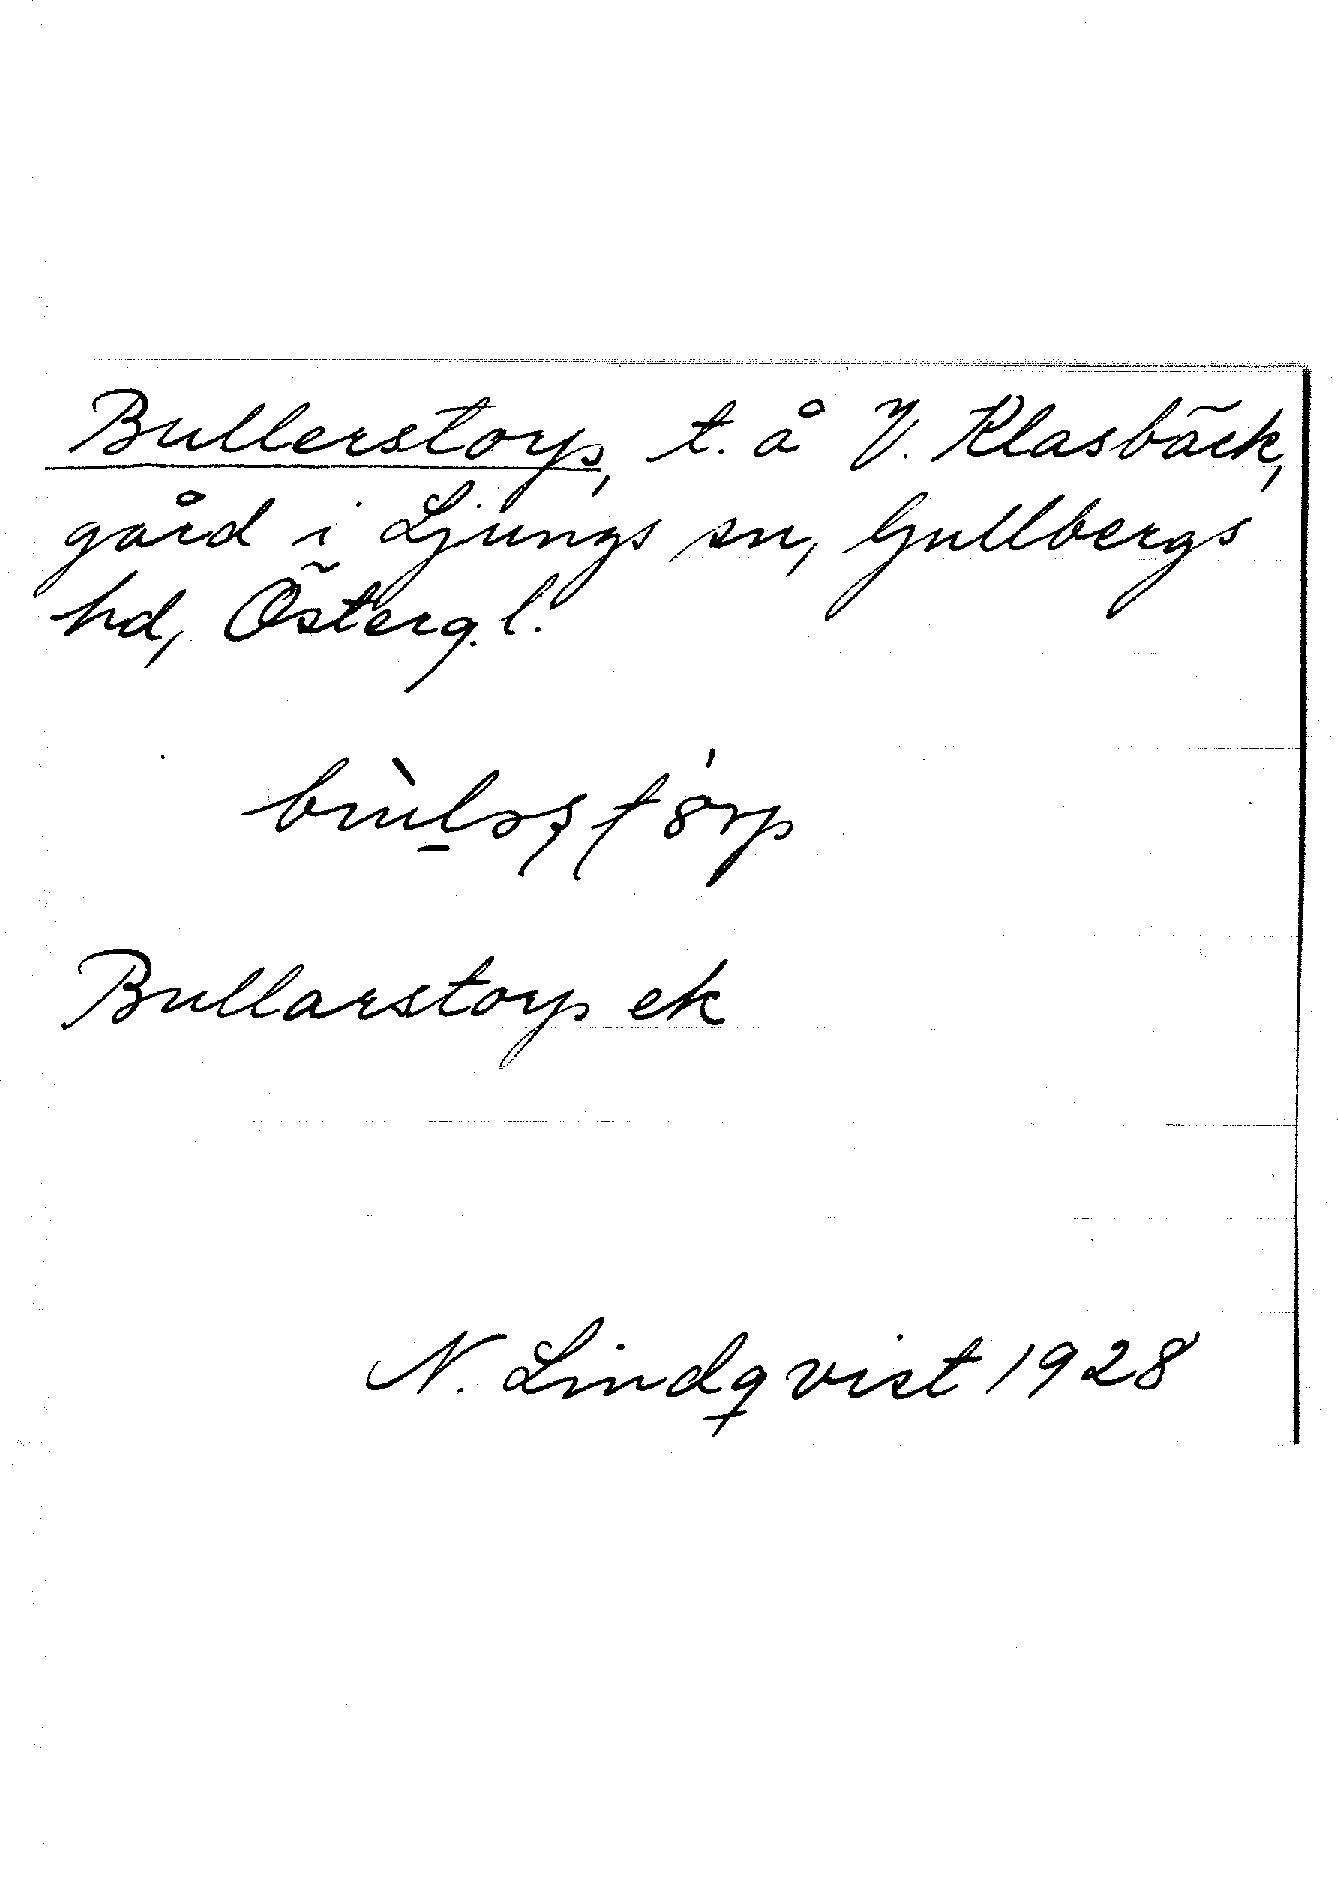 Bullerstorp, t. å V. Klasbäck,
gård i Ljungs sn, Gullbergs
hd, Österg. l.
Bullarstorp ek
N. Lindqvist 1928